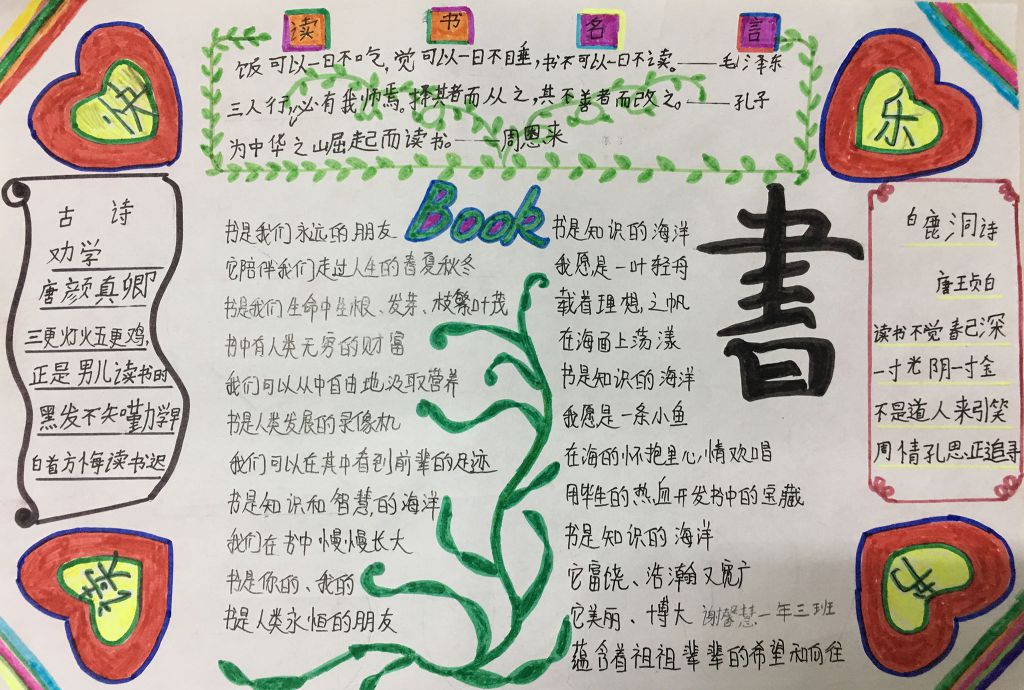 读书名言
饭可以一日不吃,觉可以一日不睡,书不可以一日不读。——毛泽东
三人行,必有我师焉。择其者而从之,其不善者而改之。——孔子
为中华之山崛起而读书。——周恩来
快
乐
古诗
劝学
唐颜真卿
三更灯火五更鸡,
正是男儿读书时
黑发不知勤学早
白首方悔读书迟
Book
书是我们永远的朋友
它陪伴我们走过人生的春夏秋冬
书是我们生命中生根、发芽、枝繁叶茂
书中有人类无穷的财富
我们可以从中自由地汲取营养
书是人类发展的录像机
我们可以在其中看到前辈的足迹
书是知识和智慧的海洋
我们在书中慢慢长大
书是你的、我的
书是人类永恒的朋友
书是知识的海洋
我愿是一叶轻舟
载着理想之帆
在海面上荡漾
书是知识的海洋
我愿是一条小鱼
在海的怀抱里心情欢唱
用毕生的热血开发书中的宝藏
书是知识的海洋
它富饶、浩瀚又宽广
它美丽、博大
谢馨慧一年三班
蕴含着祖祖辈辈的希望和向往
書
白鹿洞诗
唐王贞白
读书不觉春已深
一寸光阴一寸金
不是道人来引笑
周情孔思正追寻
读
书